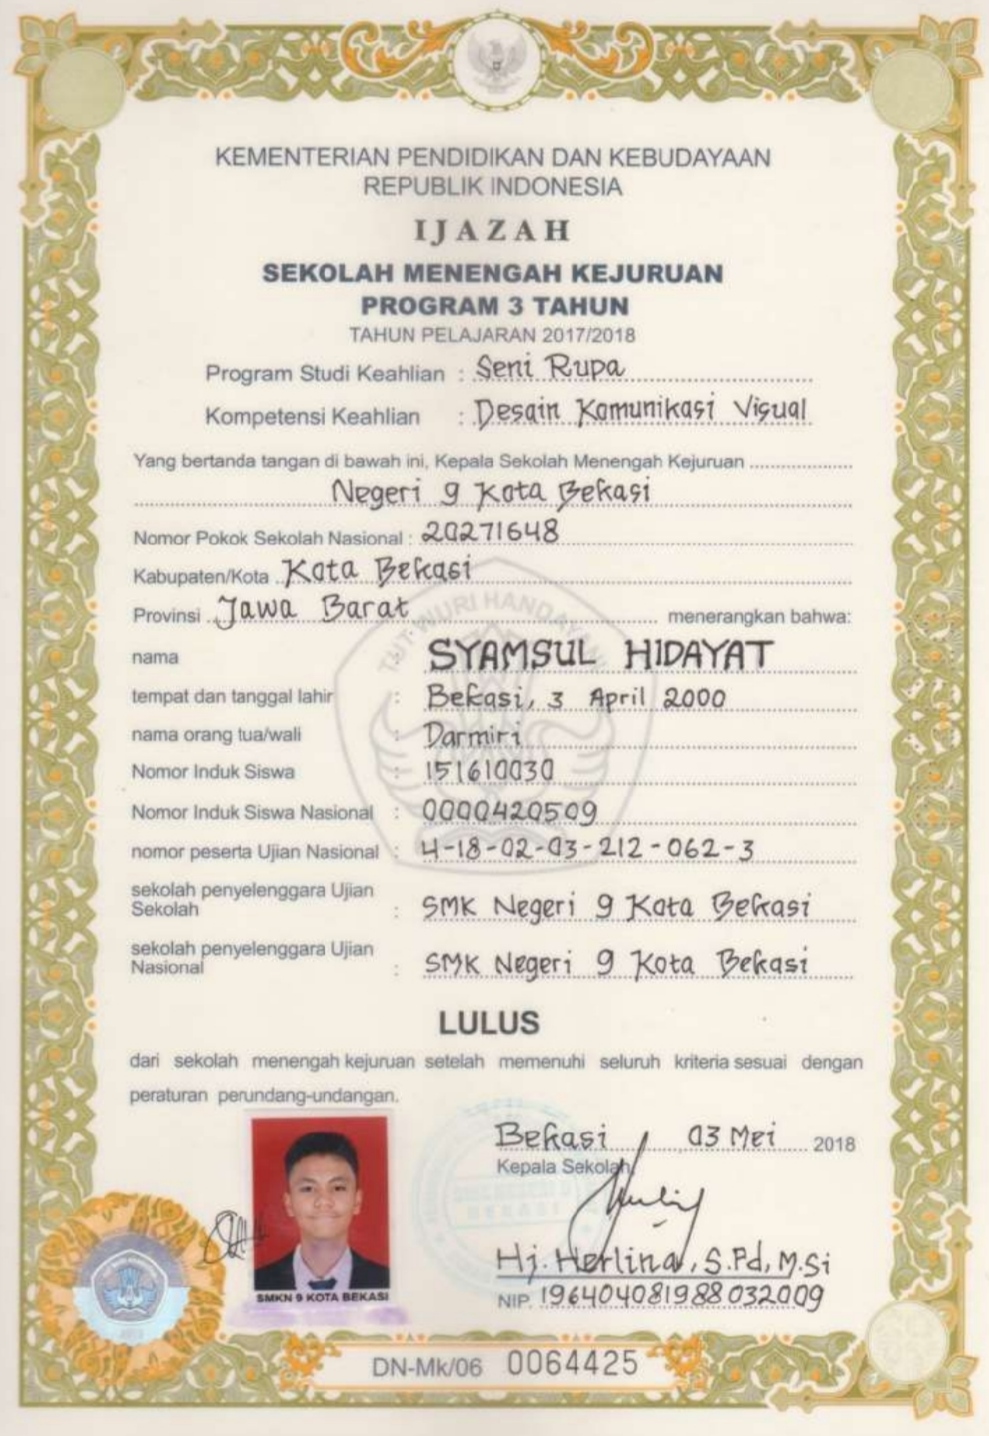 KEMENTERIAN PENDIDIKAN DAN KEBUDAYAAN
REPUBLIK INDONESIA
IJAZAH
SEKOLAH MENENGAH KEJURUAN
PROGRAM 3 TAHUN
TAHUN PELAJARAN 2017/2018
Program Studi Keahlian : Seni Rupa
Kompetensi Keahlian : Desain Komunikasi Visual
Yang bertanda tangan di bawah ini, Kepala Sekolah Menengah Kejuruan
Negeri 9 Kota Bekasi
Nomor Pokok Sekolah Nasional : 20271648
Kabupaten/Kota Kota Bekasi
Provinsi Jawa Barat menerangkan bahwa:
TUT WURI HANDAYANI
nama : SYAMSUL HIDAYAT
tempat dan tanggal lahir : Bekasi, 3 April 2000
nama orang tua/wali : Darmiri
Nomor Induk Siswa : 151610030
Nomor Induk Siswa Nasional : 0000420509
nomor peserta Ujian Nasional : 4-18-02-03-212-062-3
sekolah penyelenggara Ujian
Sekolah : SMK Negeri 9 Kota Bekasi
sekolah penyelenggara Ujian
Nasional : SMK Negeri 9 Kota Bekasi
LULUS
dari sekolah menengah kejuruan setelah memenuhi seluruh kriteria sesuai dengan
peraturan perundang-undangan.
Bekasi, 03 Mei 2018
Kepala Sekolah,
Hj. Herlina, S.Pd, M.Si
NIP. 196404081988032009
SMKN 9 KOTA BEKASI
DN-Mk/06 0064425